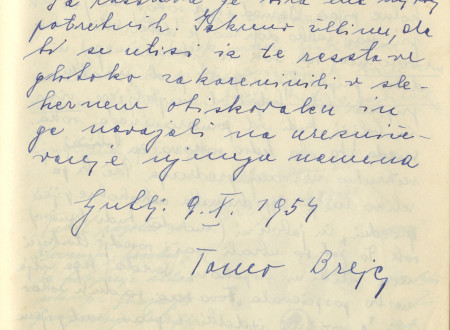 Ta razstava je
potrebnih. Iskreno želimo, da
bi se utisi iz te razstave
globoko zakoreninili v sle-
hernem obiskovalcu in
ga navajali na uresniče-
vanje njenega namena
Ljublj. 9. X. 1954
Tomo Brejc